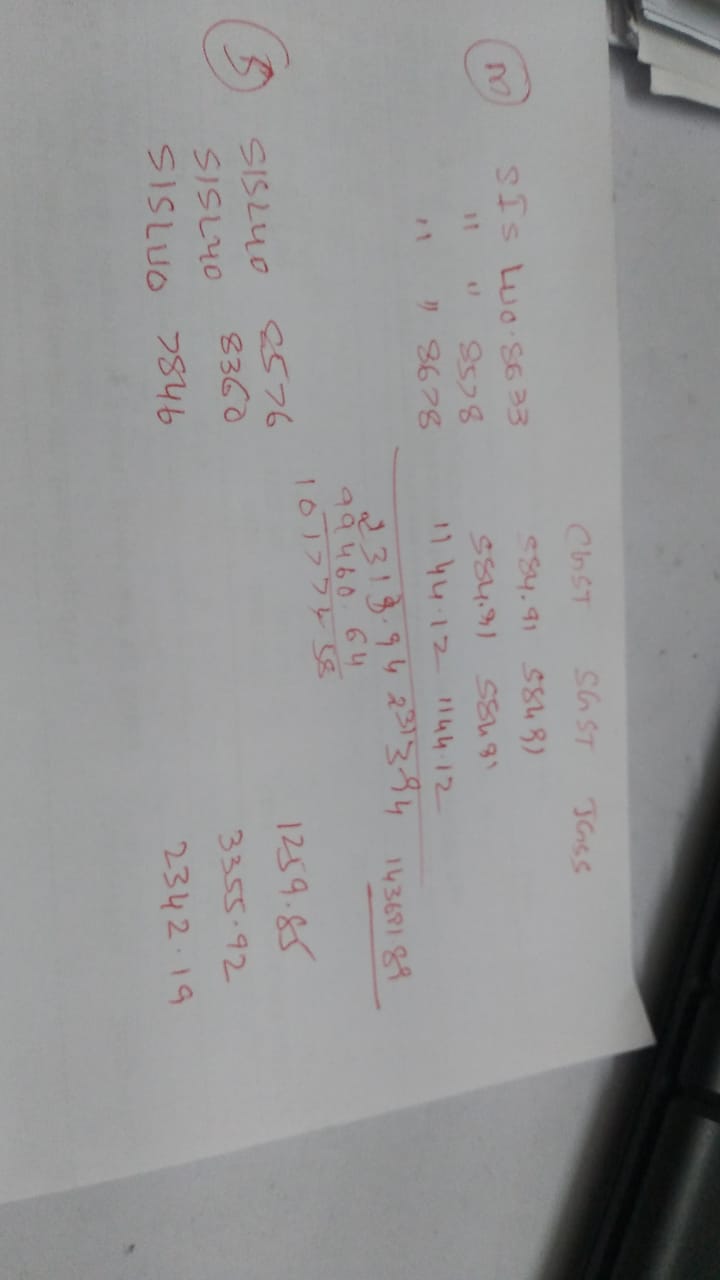 CGST SGST IGSS
SIS W0.8633 584.91 584.91
" " 8578 584.91 584.91
" " 8678 1144.12 1144.12
2313.94 2313.94 14368189
99460.64
101774.58
SISLW0 8576 1259.85
SISLW0 8360 3355.92
SISLW0 7846 2342.19